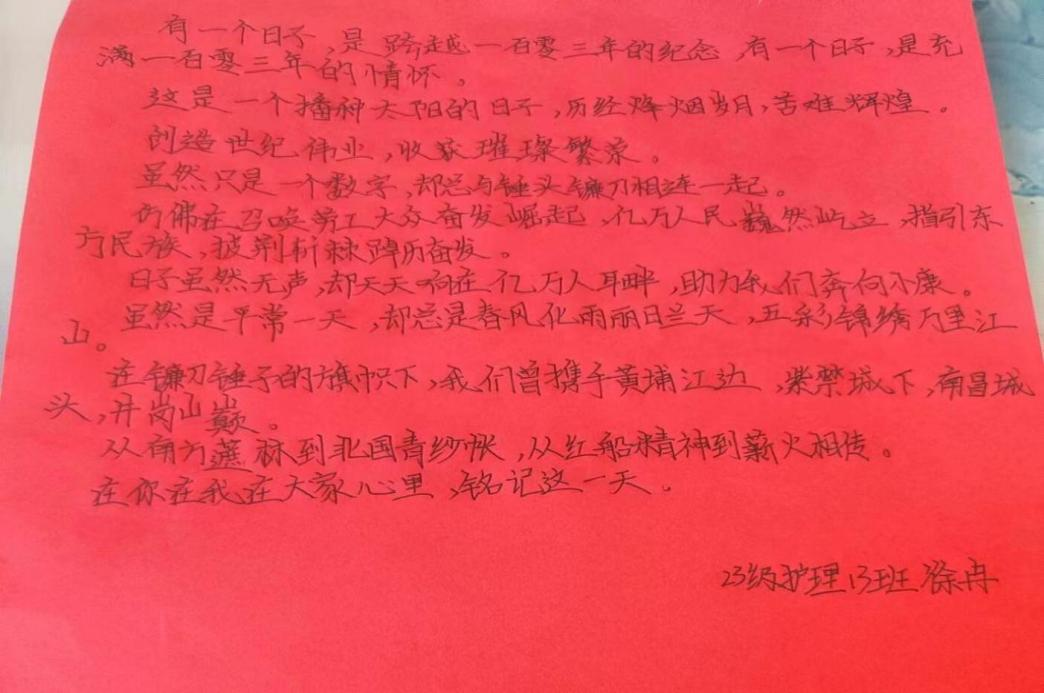 有一个日子,是跨越一百零三年的纪念,有一个日子,是充
满一百零三年的情怀。
这是一个播种太阳的日子,历经烽烟岁月,苦难辉煌。
创造世纪伟业,收获璀璨繁荣。
虽然只是一个数字,却总与锤头镰刀相连一起。
仿佛在召唤劳工大众奋发崛起,亿万人民巍然屹立,指引东
方民族,披荆斩棘踔厉奋发。
日子虽然无声,却天天响在亿万人耳畔,助力我们奔向小康。
虽然是平常一天,却总是春风化雨丽日兰天,五彩锦绣万里江
山。
在镰刀锤子的旗帜下,我们曾携手黄埔江边,紫禁城下,南昌城
头,井岗山巅。
从南方蔗林到北国青纱帐,从红船精神到薪火相传。
在你在我在大家心里,铭记这一天。
23级护理13班 徐冉